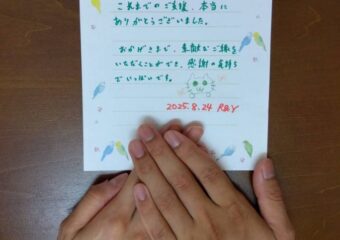 これまでのご支援、本当に
ありがとうございました。
おかげさまで、素敵なご縁を
いただくことができ、感謝の気持ち
でいっぱいです。
2025.8.24 R&Y